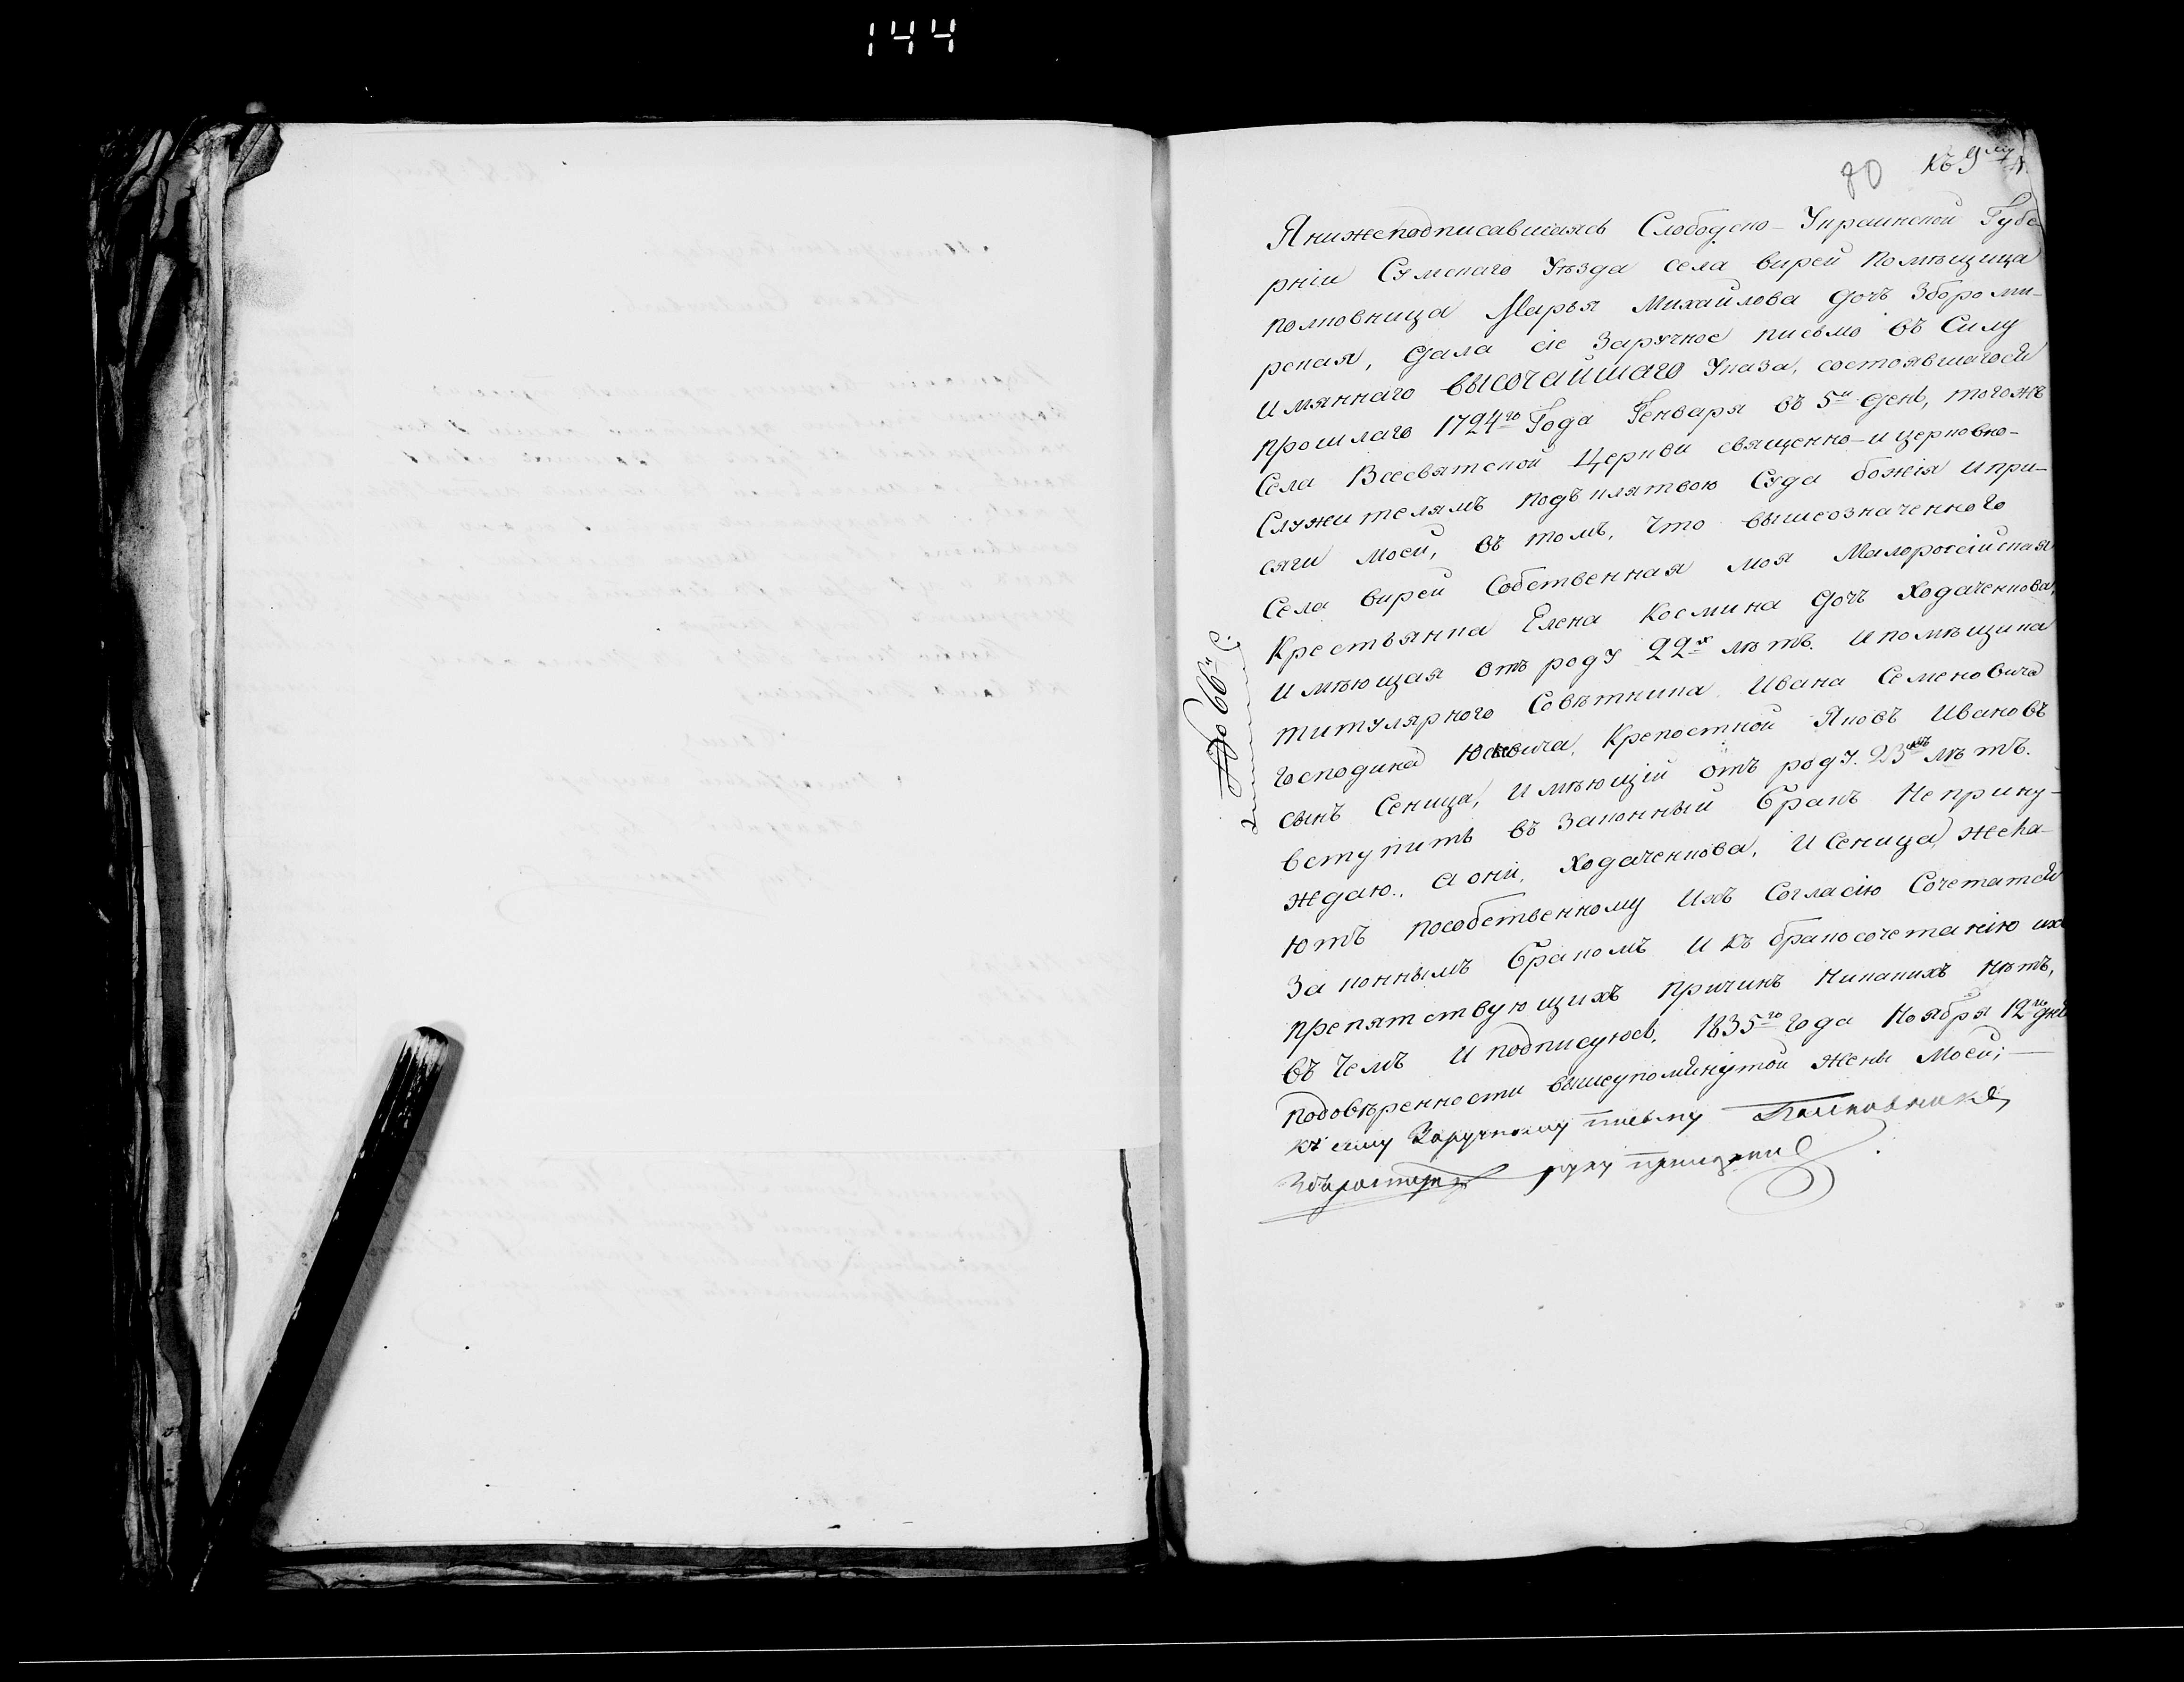 144
80
къ 9му
Я нижеподписавшаясь Слободско-Украинской Губе
рніи Сумскаго Уѣзда села Вирей Помѣщица
полковница Марья Михайлова дочь Зборомир-
рская, дала сіе Заручное письмо въ Силу
имяннаго ВЫСОЧАЙШАГО Указа, состоявшагося
прошлаго 1724го Года Генваря въ 5й день, тогожъ
Села Всесвятской Церкви священно-и церковно-
Служителямъ подъ клятвою Суда божія и при-
сяги моей, въ томъ, что вышеозначенного
Села вирей Собственная моя Малоросійская
Крестьянка Елена Космина дочь Ходаченкова,
имѣющая отъ роду 22х лѣтъ. и помѣщика
титулярного Совѣтника Ивана Семеновича
Господина крепостной Яковъ Ивановъ
сынъ Сеница, имѣющій отъ роду 23 лѣтъ.
вступить въ Законный бракъ Неприну-
ждаю, а они, Ходаченкова, и Сеница, жела-
ютъ пособственному ихъ Согласію Сочетатся
Законнымъ бракомъ и къ бракосочетанію ихъ
препятствующихъ причинъ Никакихъ нѣтъ,
въ чемъ и подписуюсь, 1835го года Ноября 12го дня
подовѣренности вышеупомянутой жены моей;
къ сему Заручному письму Полковникъ
руку приложилъ